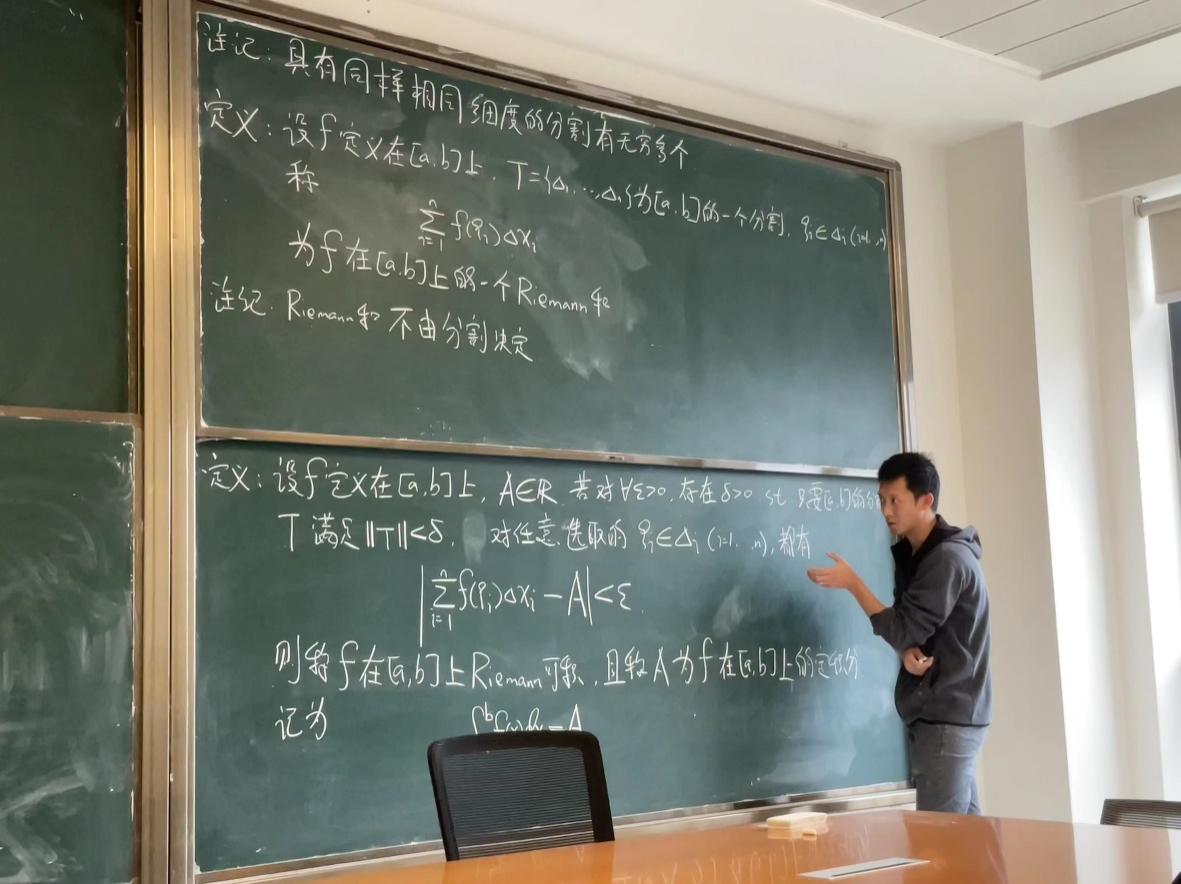 注记: 具有同样相同细度的分割有无穷多个
定义: 设f定义在[a,b]上, T={Δ₁,…,Δₙ}为[a,b]的一个分割, ξᵢ∈Δᵢ(i=1,…,n)
称
∑ᵢ₌₁ⁿ f(ξᵢ)Δxᵢ
为f在[a,b]上的一个Riemann和
注记: Riemann和不由分割决定
定义: 设f定义在[a,b]上, A∈R, 若对∀ε>0, 存在δ>0, s.t. 只要[a,b]的分
T满足||T||<δ, 对任意选取的ξᵢ∈Δᵢ(i=1,…,n), 都有
|∑ᵢ₌₁ⁿ f(ξᵢ)Δxᵢ-A|<ε.
则称f在[a,b]上Riemann可积, 且称A为f在[a,b]上的定积分
记为